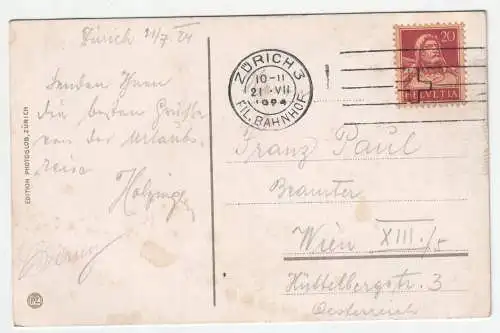 Zürich 21/7. 24
Senden Ihnen
die besten Grüße
von der Urlaubs-
reise
Holzinger
EDITION PHOTOGLOB, ZÜRICH
PZ
ZÜRICH 3
10-11
21. VII
1924
FIL. BAHNHOF
20
HELVETIA
Franz Paul
Beamter
Wien XIII/5
Hüttelbergstr. 3
Oesterreich